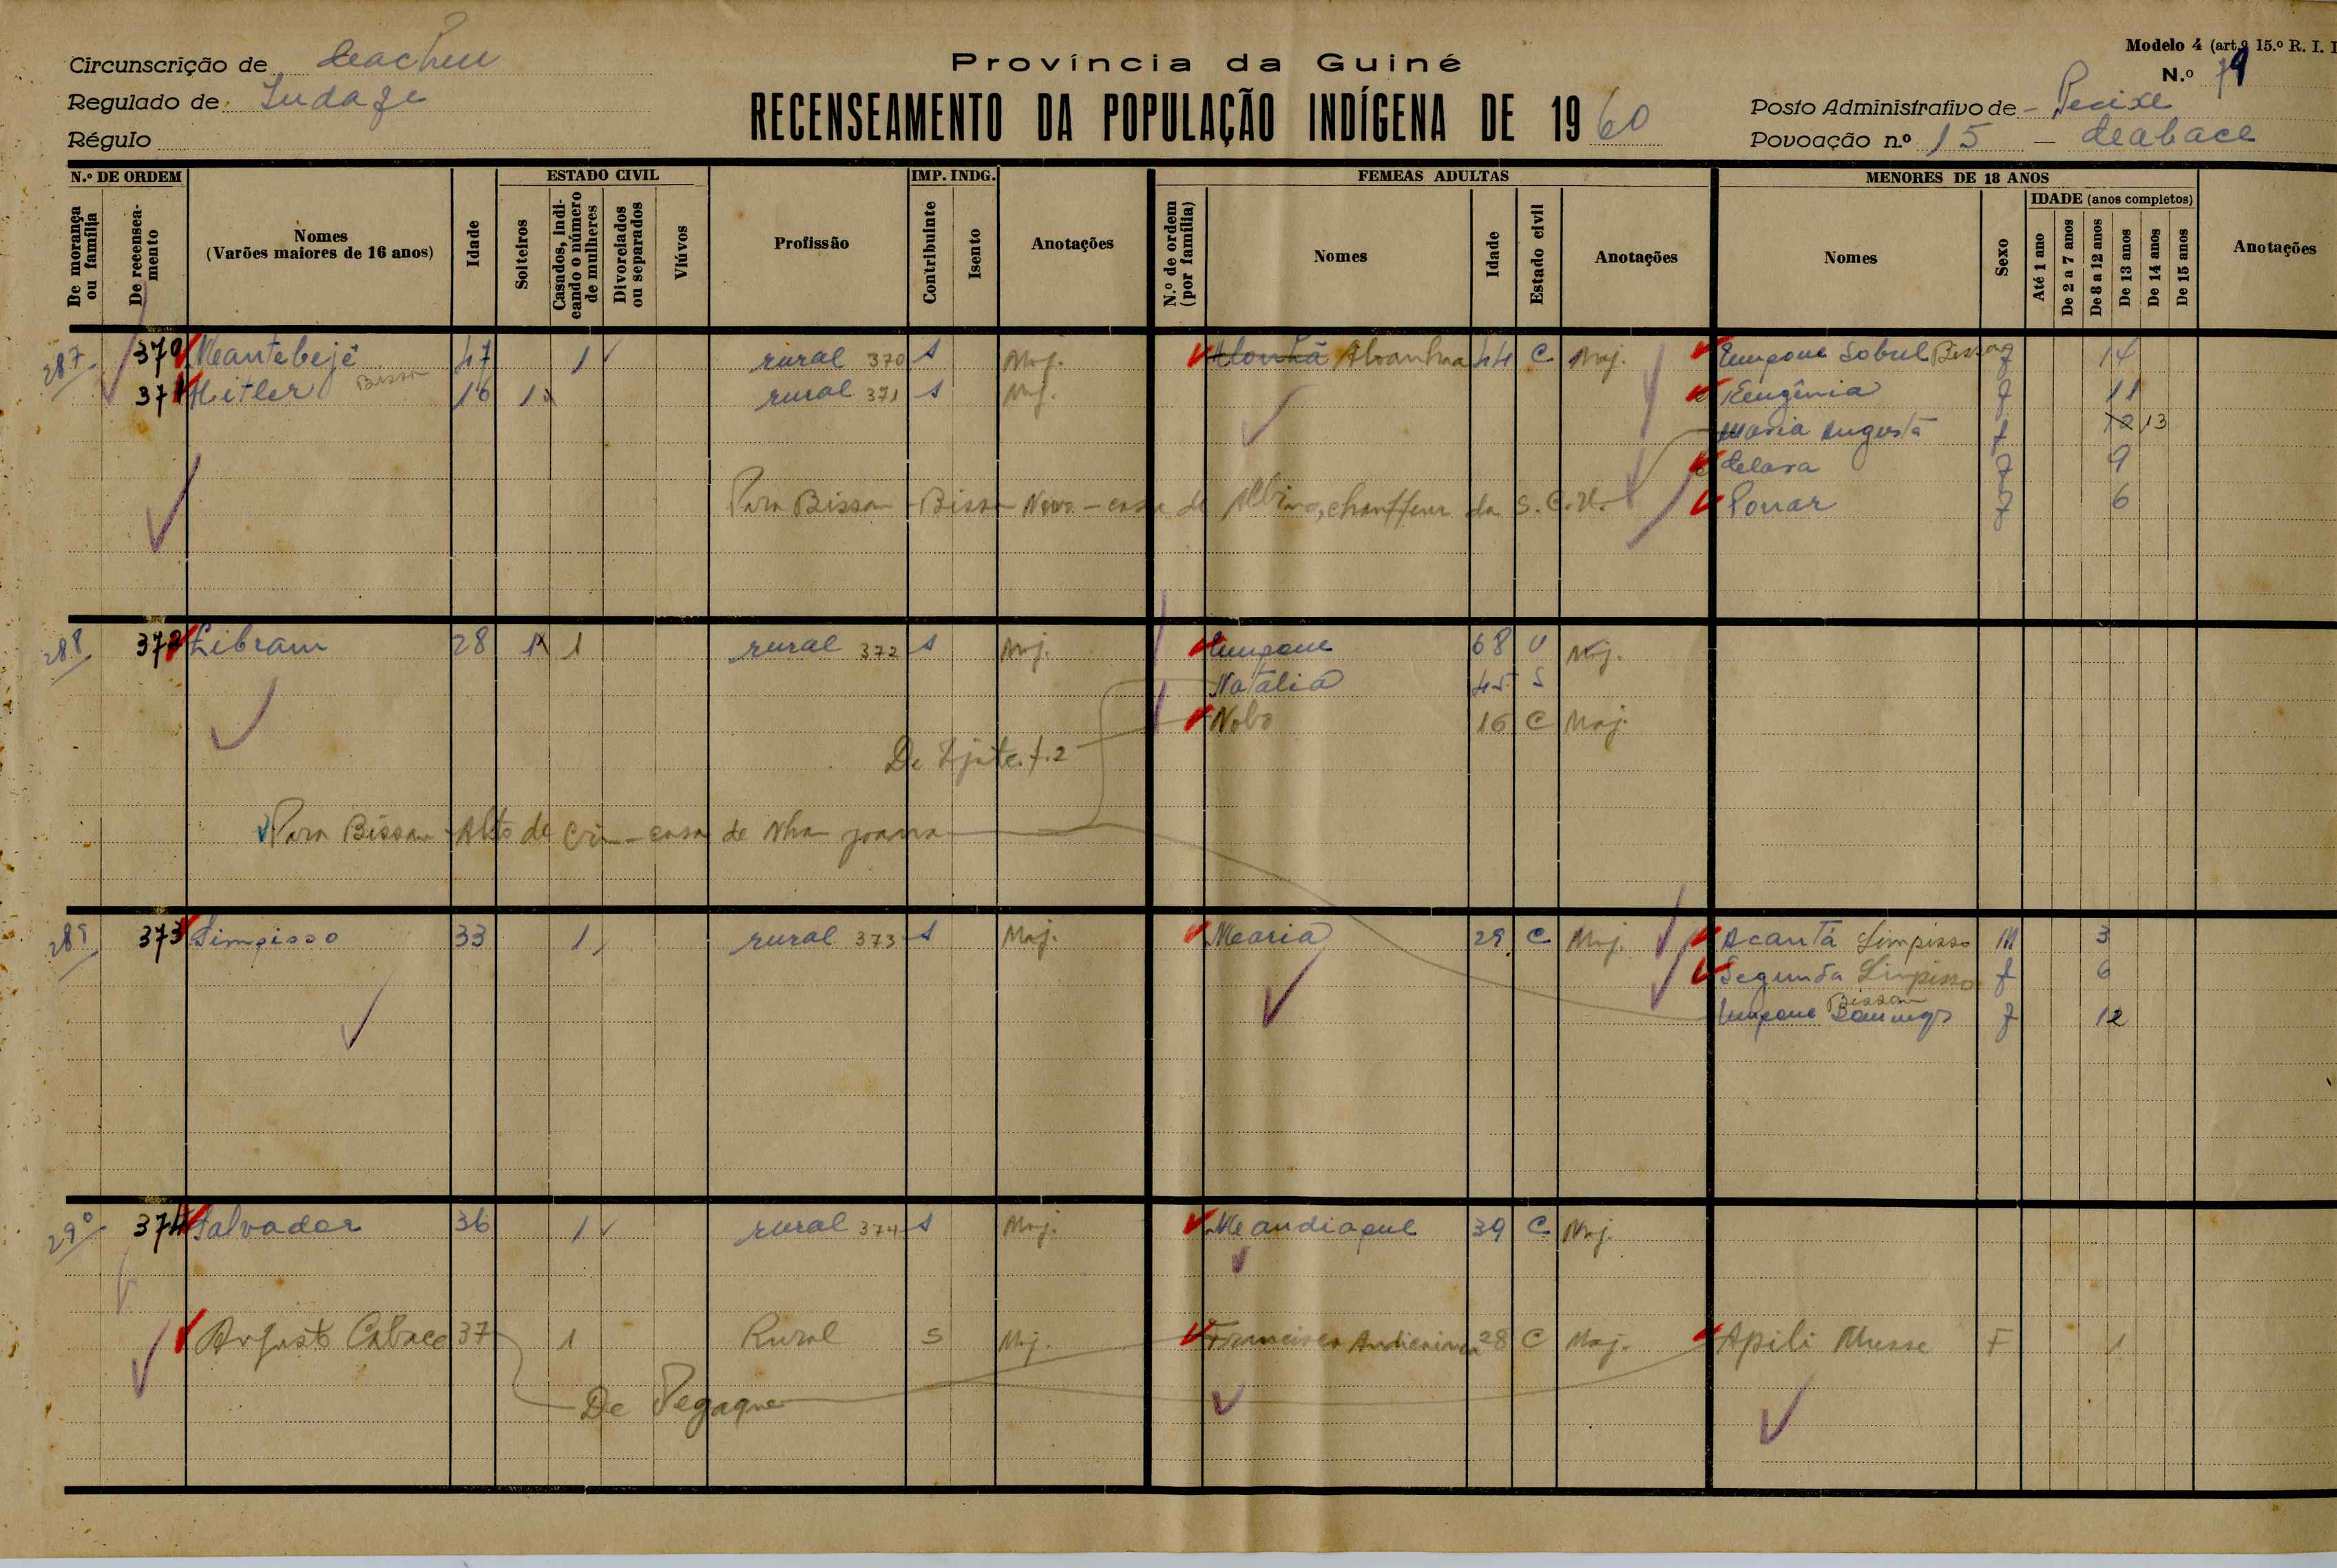 Modelo 4 (art.º 15.º R. I. I
Circunscrição de Cacheu
Província da Guiné
N.º 79
Regulado de
RECENSEAMENTO DA POPULAÇÃO INDÍGENA DE 1960
Posto Administrativo de - Pecixe
Régulo
Povoação n.º 15 - Cabace
N.º DE ORDEM
ESTADO CIVIL
IMP. INDG.
FEMEAS ADULTAS
MENORES DE 18 ANOS
De morança ou família
De recenseamento
Nomes
(Varões maiores de 16 anos)
Idade
Solteiros
Casados, indicando o número de mulheres
Divorciados ou separados
Viúvos
Profissão
Contribuinte
Isento
Anotações
N.º de ordem (por família)
Nomes
Idade
Estado civil
Anotações
Nomes
Sexo
IDADE (anos completos)
Até 1 ano
De 2 a 7 anos
De 8 a 12 anos
De 13 anos
De 14 anos
De 15 anos
Anotações
287 370 Mantebejé 47 1 rural 370 s Maj. Aloanha 44 C Maj. Sobul Bissau f 14
371 Hitler Bissau 16 1 rural 371 s Maj. Eugênia f 11
Maria Augusta f 12 13
Clara f 9
Para Bissau - Bissau Novo - casa de Albino, chauffeur da S. C. U. Ponar f 6
288 372 Libram 28 1 1 rural 372 s Maj. 68 V Maj.
Natália 45 S
Nobo 16 C Maj.
De f. 2
Para Bissau - Alto de - casa de Nha Joana
289 373 Simpisso 33 1 rural 373 s Maj. Maria 29 C Maj. Acantá Simpisso M 3
Segunda Simpisso f 6
Bissau
Domingos f 12
290 374 Salvador 36 1 rural 374 s Maj. Mandiaque 39 C Maj.
Augusto Cabace 37 1 Rural S Maj. Francisca 28 C Maj. Apili Musse F 1
De Pegaque